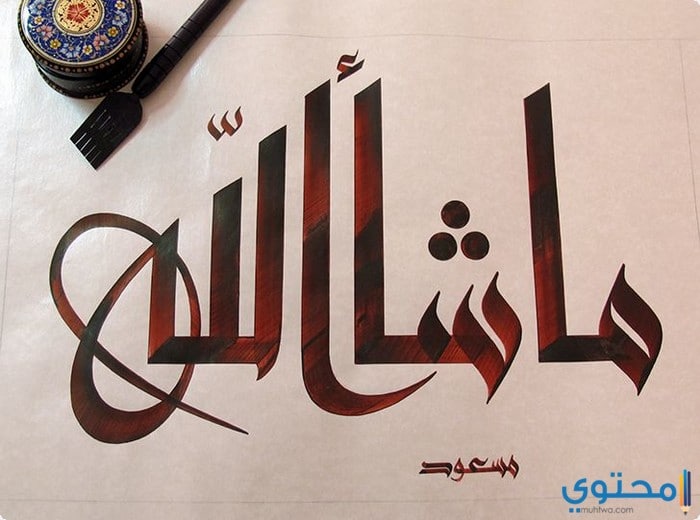 ما شأ اللّه
مسعود
محتوي
muhtwa.com